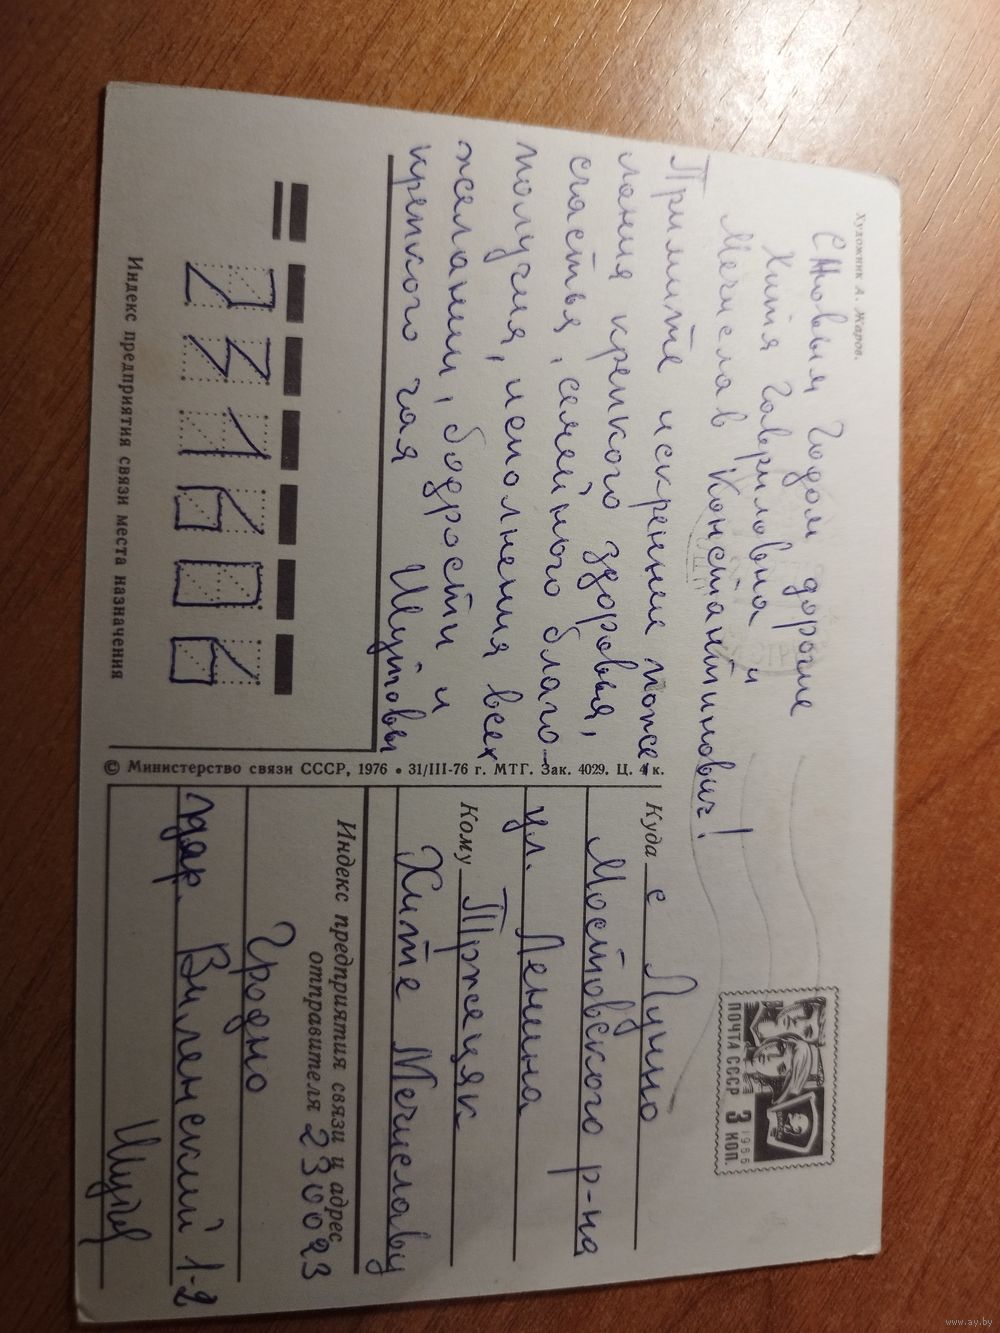 Художник А. Жаров.
С Новым Годом дорогие
Хитя Гавриловна и
Мечислав Константинович!
Примите искренние поже
лания крепкого здоровья,
счастья, семейного благо-
получия, исполнения всех
желаний, бодрости и
крепкого чая Шутовы
231606
Индекс предприятия связи места назначения
© Министерство связи СССР, 1976 • 31/III-76 г. МТГ. Зак. 4029. Ц. 4 к.
ПОЧТА СССР 3 КОП.
1966
Куда с Лунно
Мостовского р-на
ул. Ленина
Кому Тржецяк
Хите Мечиславу
Индекс предприятия связи и адрес
отправителя 230023
Гродно
Виленский 1-2
www.ay.by